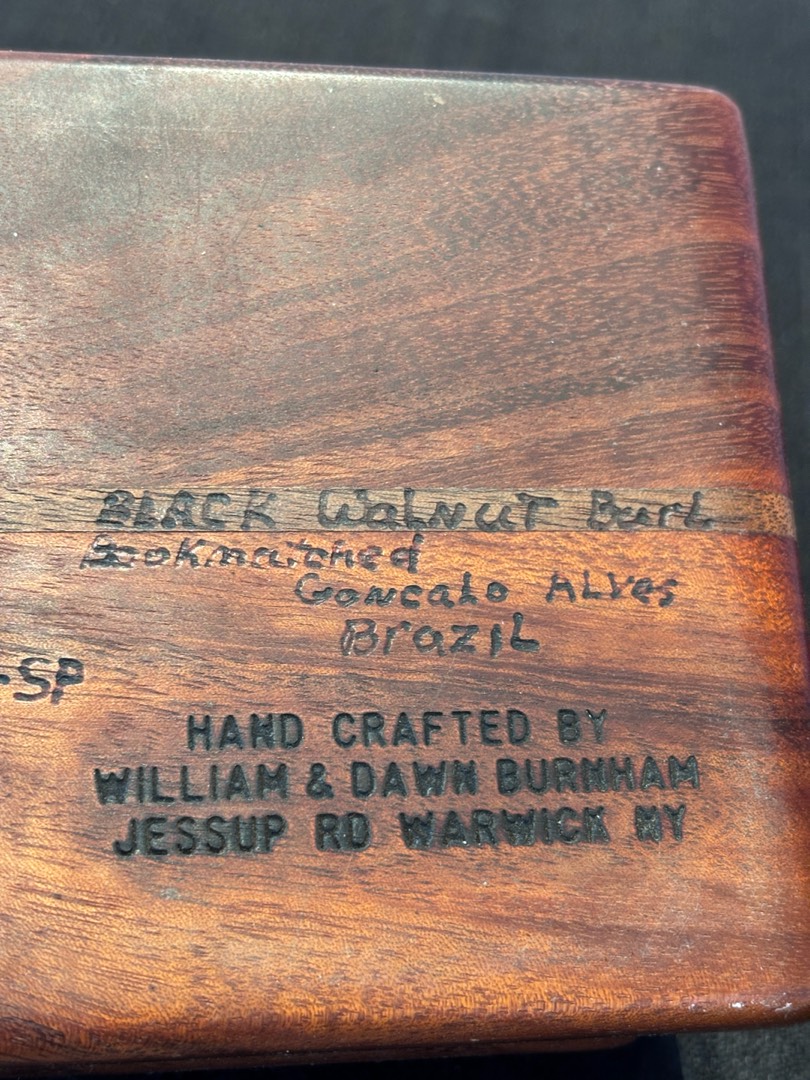 BLACK Walnut Burl
Bookmatched
Goncalo Alves
Brazil
-SP
HAND CRAFTED BY
WILLIAM & DAWN BURNHAM
JESSUP RD WARWICK NY